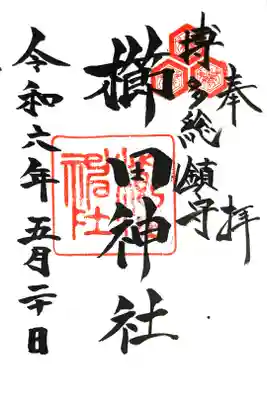 奉拝
博多総鎮守
櫛田神社
令和六年五月二十日